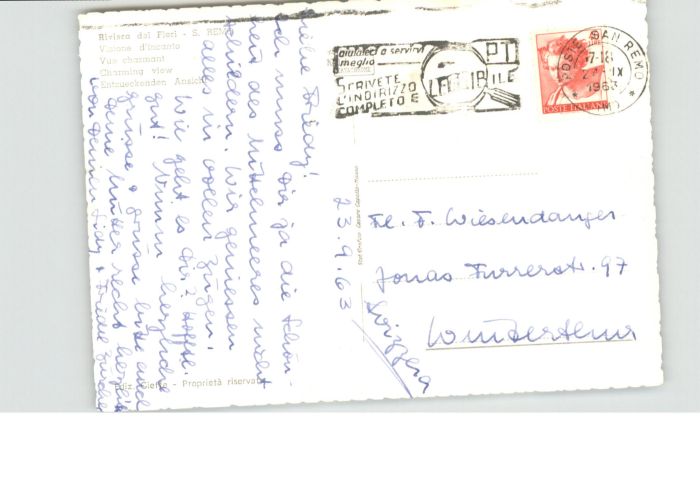 Riviera dei Fiori - S. REMO
Visione d'incanto
Vue charmant
Charming view
Entzueckenden Ansicht
Liebe Friedy!
Ich muss Dir ja die Schön-
heit des Mittelmeeres nicht
schildern. Wir geniessen
alles in vollen Zügen.
Wie geht es Dir? Hoffe
gut! Nimm herzliche
Grüsse & grüsse bitte auch
Deine Mutter recht herzlich
von Deiner
23.9.63
aiutateci a servirvi
meglio
SCRIVETE
L'INDIRIZZO
COMPLETO E
LEGGIBILE
PT
POSTE SAN REMO
1963
POSTE ITALIANE
Frl. F. Wiesendanger
Jonas Furrerstr. 97
Winterthur
Svizzera
Ediz. Gieffe - Proprietà riservata